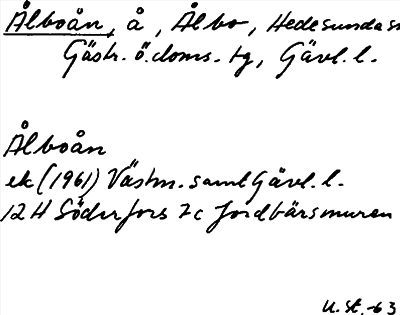 Ålboån, å, Ålbo, Hedesunda sn
Gästr. ö. doms. tg, Gävl. l.
Ålboån
ek (1961) Västm. samt Gävl. l.
12 H Söderfors 7 c Jordbärsmuren
U. St. -63